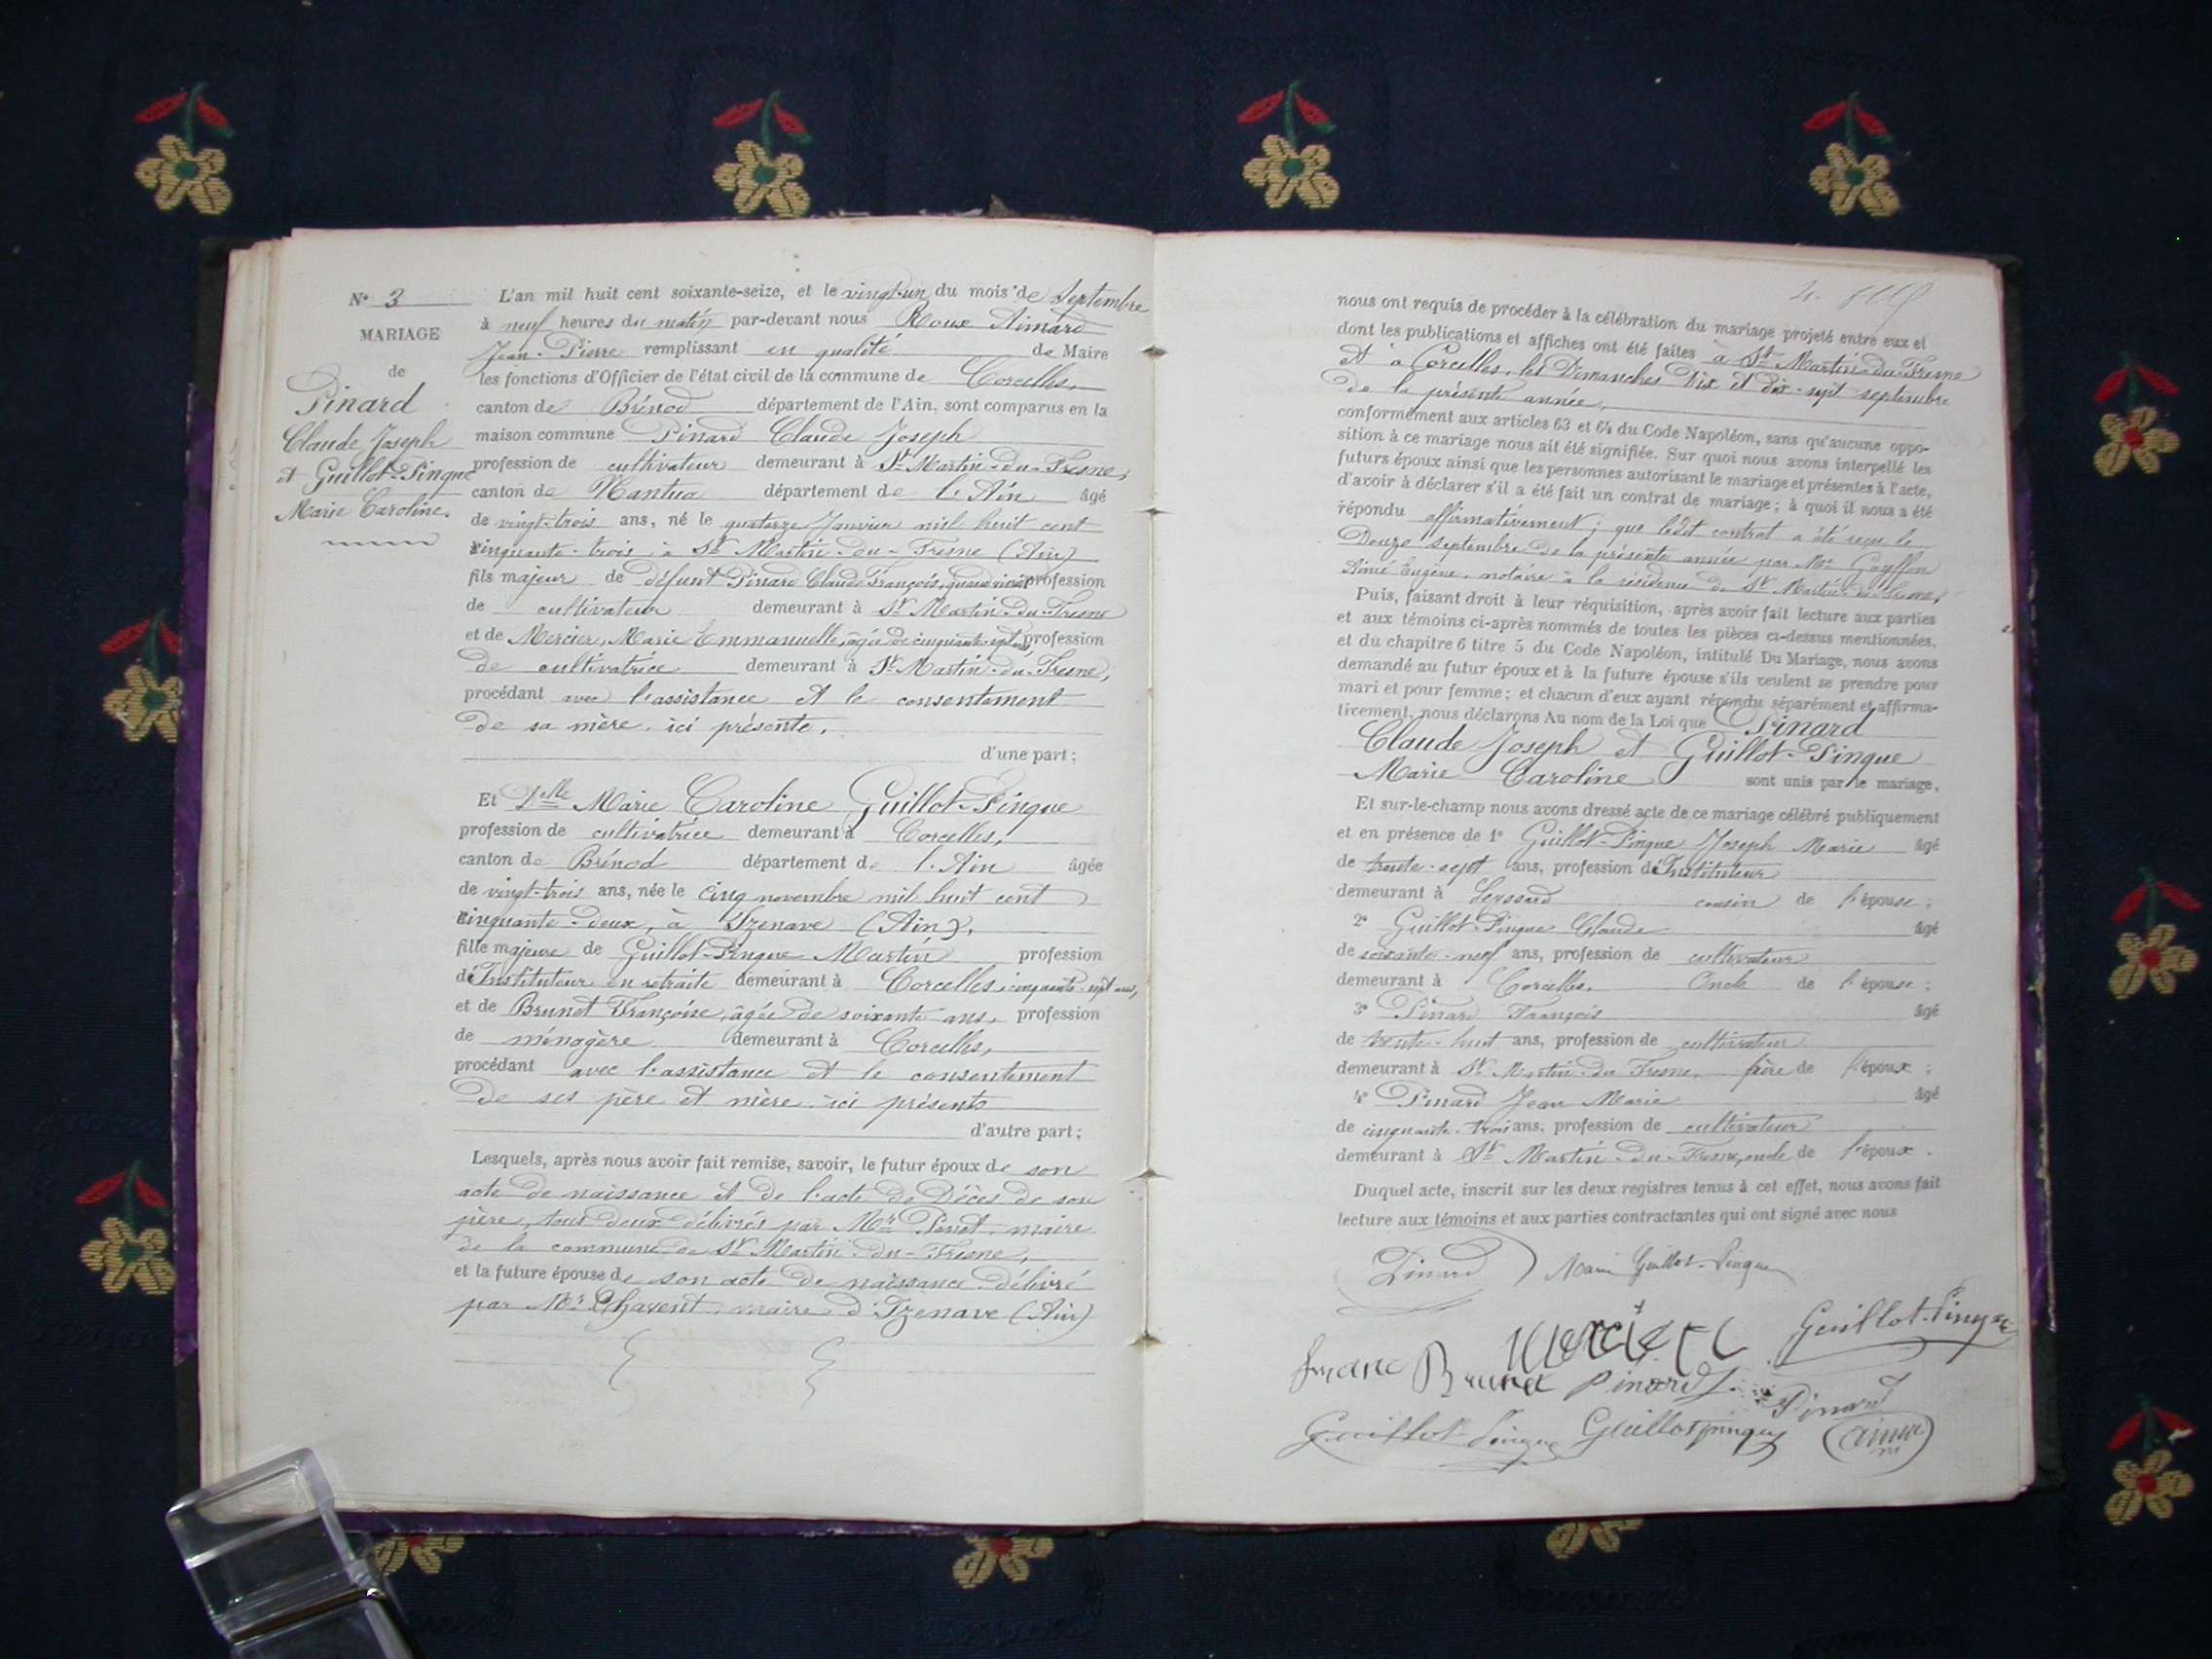 N° 3
MARIAGE
de
Pinard
Claude Joseph
et Guillot-Pingue
Marie Caroline.
L'an mil huit cent soixante-seize, et le vingt-un du mois de Septembre
à neuf heures du matin par-devant nous Roux Aimard
Jean-Pierre remplissant en qualité de Maire
les fonctions d'Officier de l'état civil de la commune de Corcelles,
canton de Brénod département de l'Ain, sont comparus en la
maison commune Pinard Claude Joseph
profession de cultivateur demeurant à St Martin-du-Fresne,
canton de Nantua département de l'Ain âgé
de vingt-trois ans, né le quatorze Janvier mil huit cent
cinquante-trois à St Martin-du-Fresne (Ain)
fils majeur de défunt Pinard Claude François, quand vivait profession
de cultivateur demeurant à St Martin-du-Fresne
et de Mercier, Marie Emmanuelle, âgée de cinquante-sept ans, profession
de cultivatrice demeurant à St Martin-du-Fresne,
procédant avec l'assistance et le consentement
de sa mère, ici présente,
d'une part;
Et Delle Marie Caroline Guillot-Pingue
profession de cultivatrice demeurant à Corcelles,
canton de Brénod département de l'Ain âgée
de vingt-trois ans, née le cinq novembre mil huit cent
cinquante-deux, à Izenave (Ain),
fille majeure de Guillot-Pingue Martin profession
d'Instituteur en retraite demeurant à Corcelles, cinquante-sept ans,
et de Brunet Françoise, âgée de soixante ans, profession
de ménagère demeurant à Corcelles,
procédant avec l'assistance et le consentement
de ses père et mère ici présents
d'autre part;
Lesquels, après nous avoir fait remise, savoir, le futur époux de son
acte de naissance et de l'acte de Décès de son
père, tous deux délivrés par Mr Penet, maire
de la commune de St Martin-du-Fresne,
et la future épouse de son acte de naissance délivré
par Mr Chavent, maire d'Izenave (Ain)
nous ont requis de procéder à la célébration du mariage projeté entre eux et
dont les publications et affiches ont été faites à St Martin-du-Fresne
et à Corcelles, les Dimanches Dix et dix-sept septembre
de la présente année,
conformément aux articles 63 et 64 du Code Napoléon, sans qu'aucune oppo-
sition à ce mariage nous ait été signifiée. Sur quoi nous avons interpellé les
futurs époux ainsi que les personnes autorisant le mariage et présentes à l'acte,
d'avoir à déclarer s'il a été fait un contrat de mariage; à quoi il nous a été
répondu affirmativement; que ledit contrat a été reçu le
Douze septembre de la présente année par Me Goyffon
Aimé Eugène, notaire à la résidence de St Martin-du-Fresne,
Puis, faisant droit à leur réquisition, après avoir fait lecture aux parties
et aux témoins ci-après nommés de toutes les pièces ci-dessus mentionnées,
et du chapitre 6 titre 5 du Code Napoléon, intitulé Du Mariage, nous avons
demandé au futur époux et à la future épouse s'ils veulent se prendre pour
mari et pour femme; et chacun d'eux ayant répondu séparément et affirma-
tivement, nous déclarons Au nom de la Loi que Pinard
Claude Joseph et Guillot-Pingue
Marie Caroline sont unis par le mariage,
Et sur-le-champ nous avons dressé acte de ce mariage célébré publiquement
et en présence de 1° Guillot-Pingue Joseph Marie âgé
de trente-sept ans, profession d'Instituteur
demeurant à Leyssard cousin de l'épouse;
2° Guillot-Pingue Claude âgé
de soixante-neuf ans, profession de cultivateur
demeurant à Corcelles. Oncle de l'épouse;
3° Pinard François âgé
de trente-huit ans, profession de cultivateur
demeurant à St Martin-du-Fresne, frère de l'époux;
4° Pinard Jean Marie âgé
de cinquante-trois ans, profession de cultivateur
demeurant à St Martin-du-Fresne, oncle de l'époux.
Duquel acte, inscrit sur les deux registres tenus à cet effet, nous avons fait
lecture aux témoins et aux parties contractantes qui ont signé avec nous
Pinard Marie Guillot-Pingue
Mercier Guillot-Pingue
Brunet Pinard Pinard
Guillot Pingue Guillotpingue